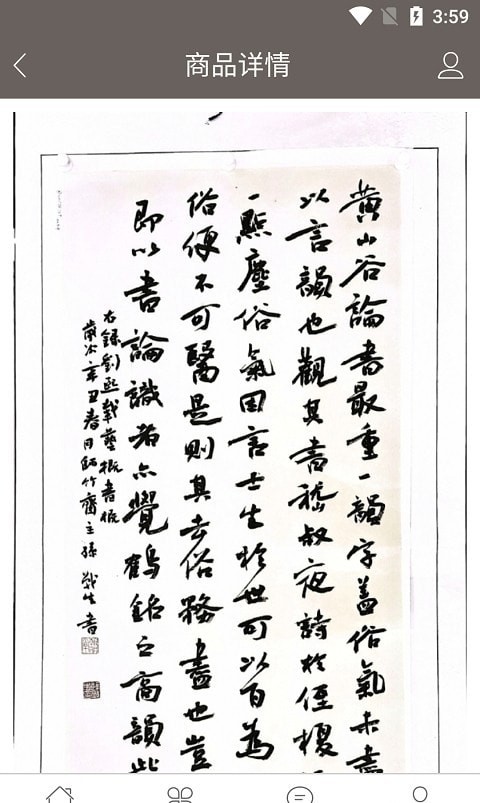 3:59
商品详情
黄山谷論書最重一韻字蓋俗氣未盡
以言韻也觀其書嵇叔夜詩於侄榎
一點塵俗氣因言士生於世可以百為
俗便不可醫是則其去俗務盡也豈
即以書論識者亦覺鶴銘之高韻此
右錄劉熙載藝概書概
歲次辛丑春月